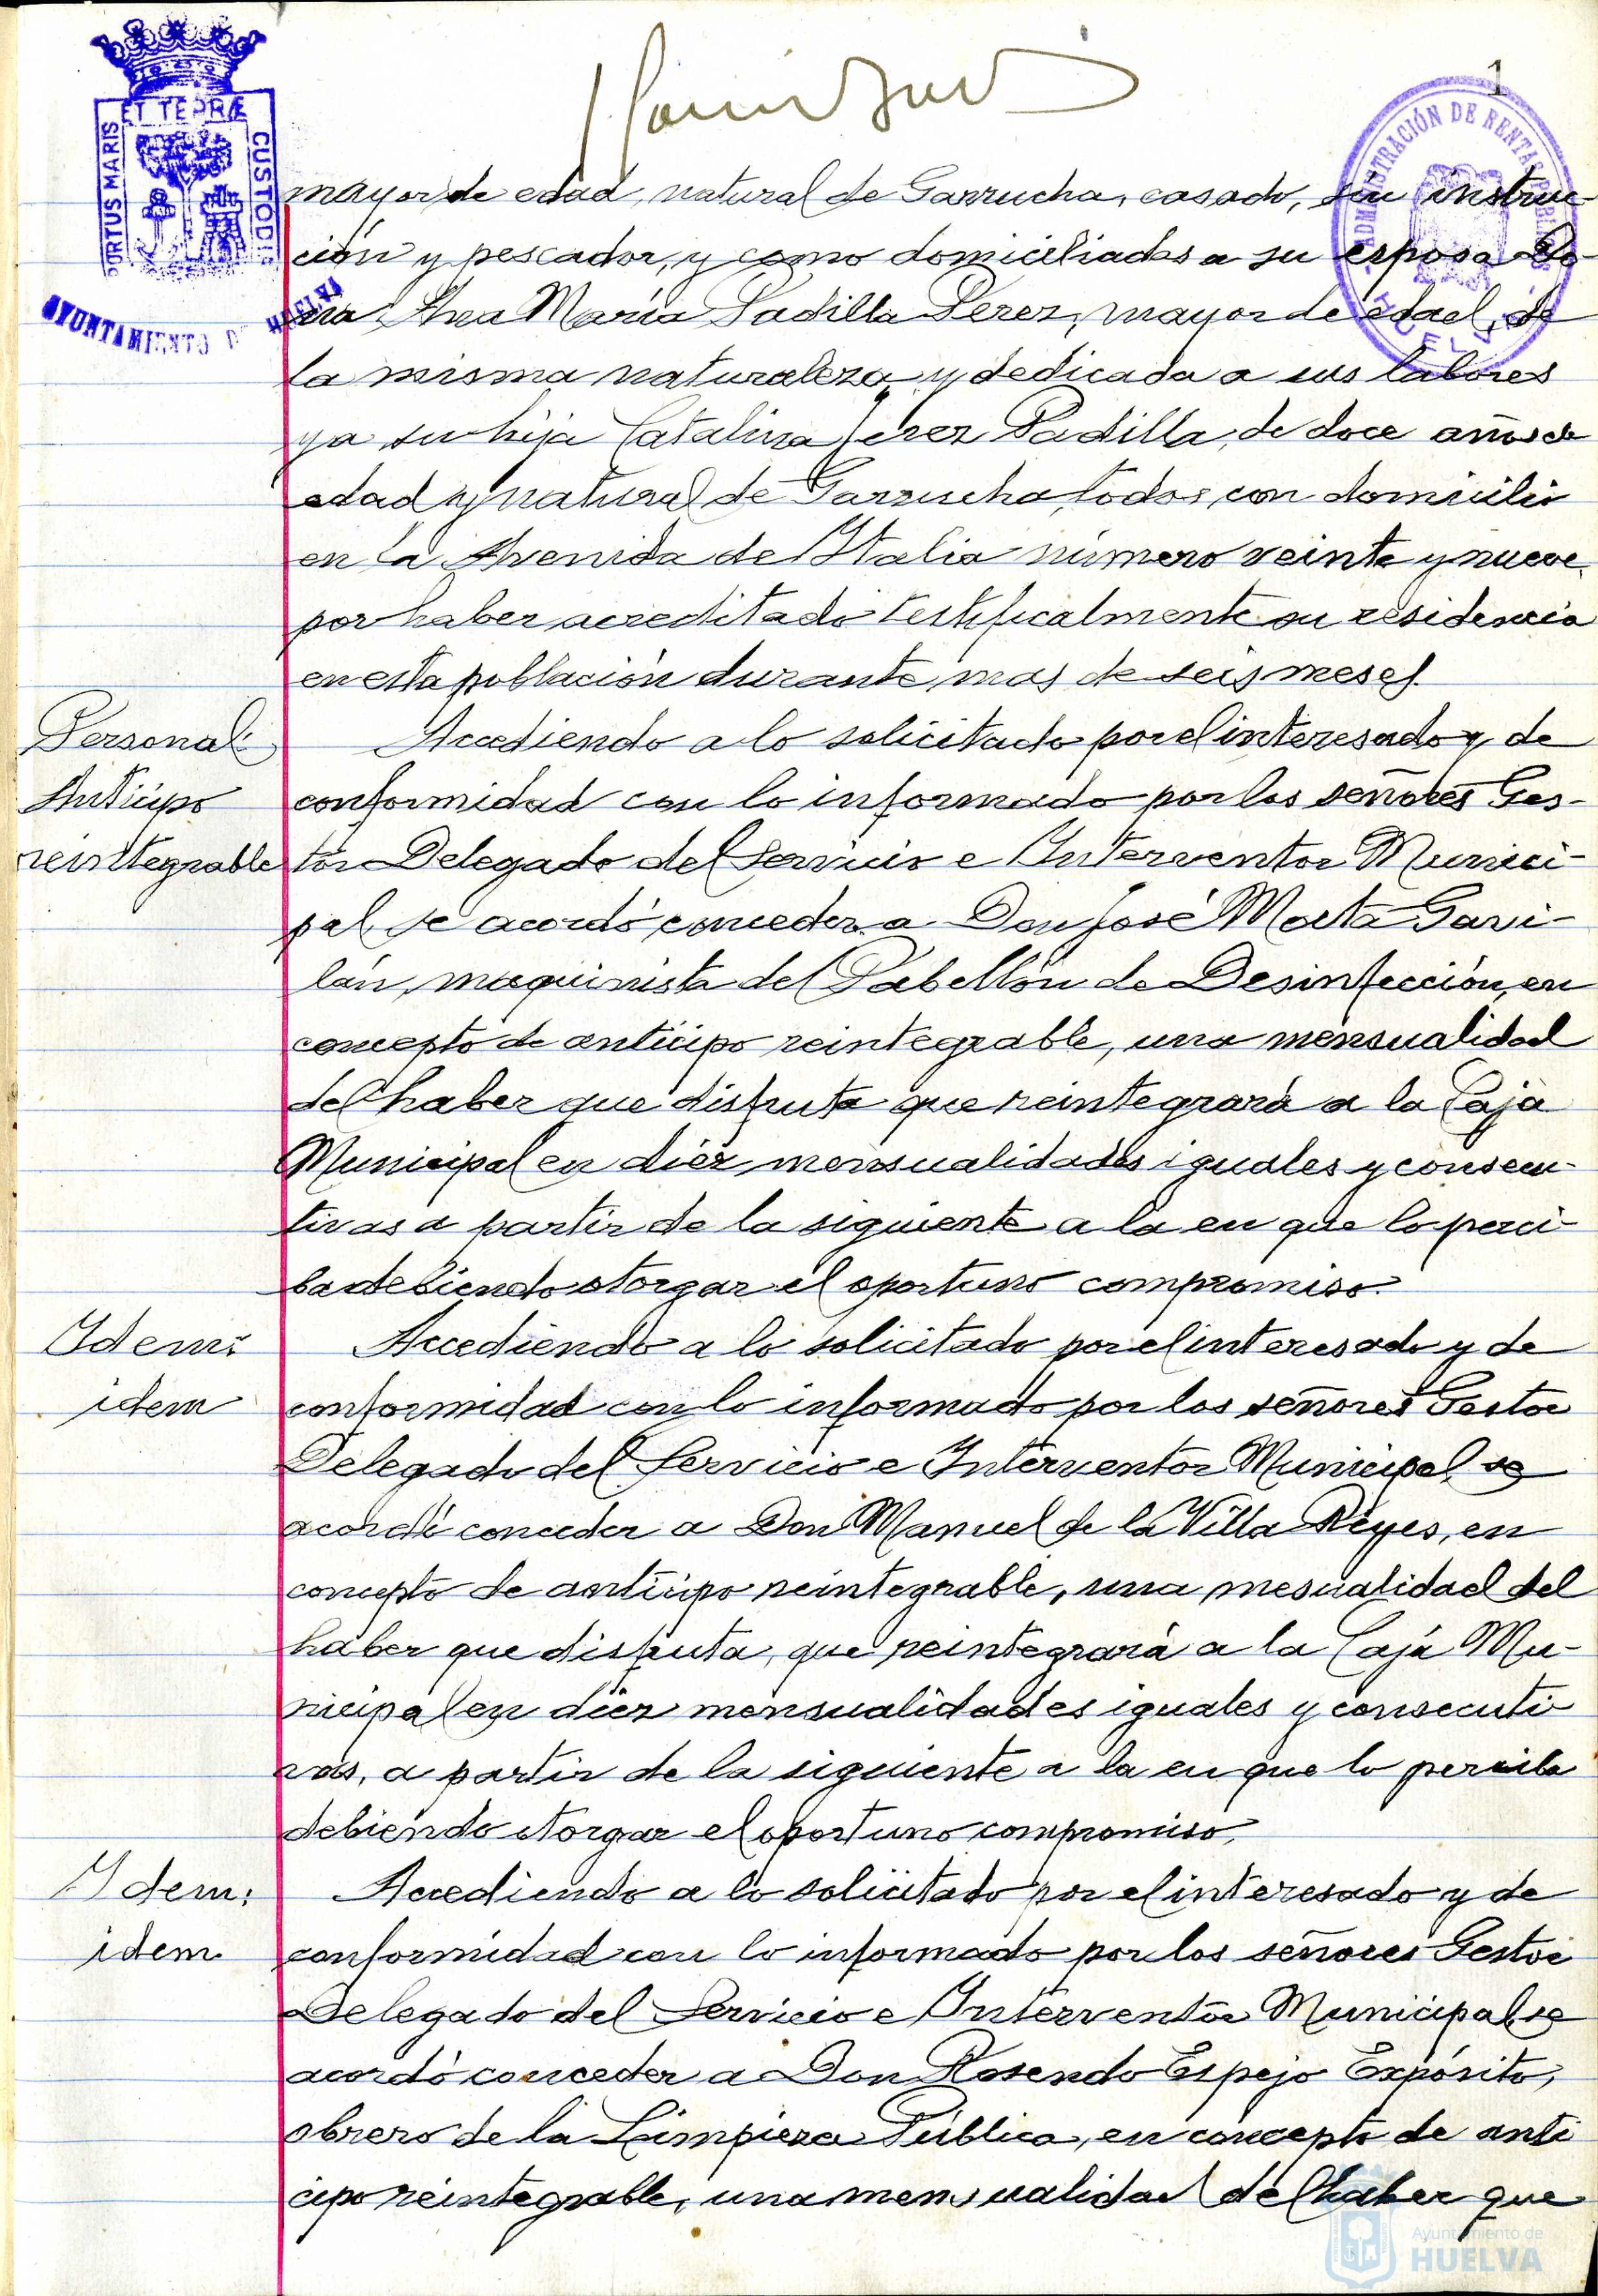 1
PORTUS MARIS
ET TERRÆ
CUSTODIA
AYUNTAMIENTO DE HUELVA
ADMINISTRACIÓN DE RENTAS PUBLICAS
HUELVA
mayor de edad, natural de Garrucha, casado, sin instruc-
ción y pescador, y como domiciliados a su esposa Do-
ña Ana María Padilla Perez, mayor de edad, de
la misma naturaleza y dedicada a sus labores
y a su hija Catalina Perez Padilla, de doce años de
edad y natural de Garrucha, todos con domicilio
en la Avenida de Italia número veinte y nueve,
por haber acreditado testificalmente su residencia
en esta población durante mas de seis meses.
Personal:
Anticipo
reintegrable
Accediendo a lo solicitado por el interesado y de
conformidad con lo informado por los señores Ges-
tor Delegado del Servicio e Interventor Munici-
pal, se acordó conceder a Don José Gavi-
lán, maquinista del Pabellón de Desinfección, en
concepto de anticipo reintegrable, una mensualidad
del haber que disfruta que reintegrará a la Caja
Municipal en diez mensualidades iguales y consecu-
tivas a partir de la siguiente a la en que lo perci-
ba debiendo otorgar el oportuno compromiso.
Idem:
idem
Accediendo a lo solicitado por el interesado y de
conformidad con lo informado por los señores Gestor
Delegado del Servicio e Interventor Municipal, se
acordó conceder a Don Manuel de la Villa Reyes, en
concepto de anticipo reintegrable, una mesualidad del
haber que disfruta, que reintegrará a la Caja Mu-
nicipal en diez mensualidades iguales y consecuti
vas, a partir de la siguiente a la en que lo perciba
debiendo otorgar el oportuno compromiso.
Idem:
idem
Accediendo a lo solicitado por el interesado y de
conformidad con lo informado por los señores Gestor
Delegado del Servicio e Interventor Municipal se
acordó conceder a Don Rosendo Espejo Expósito,
obrero de la Limpieza Pública, en concepto de anti
cipo reintegrable, una mensualidad del haber que
Ayuntamiento de
HUELVA